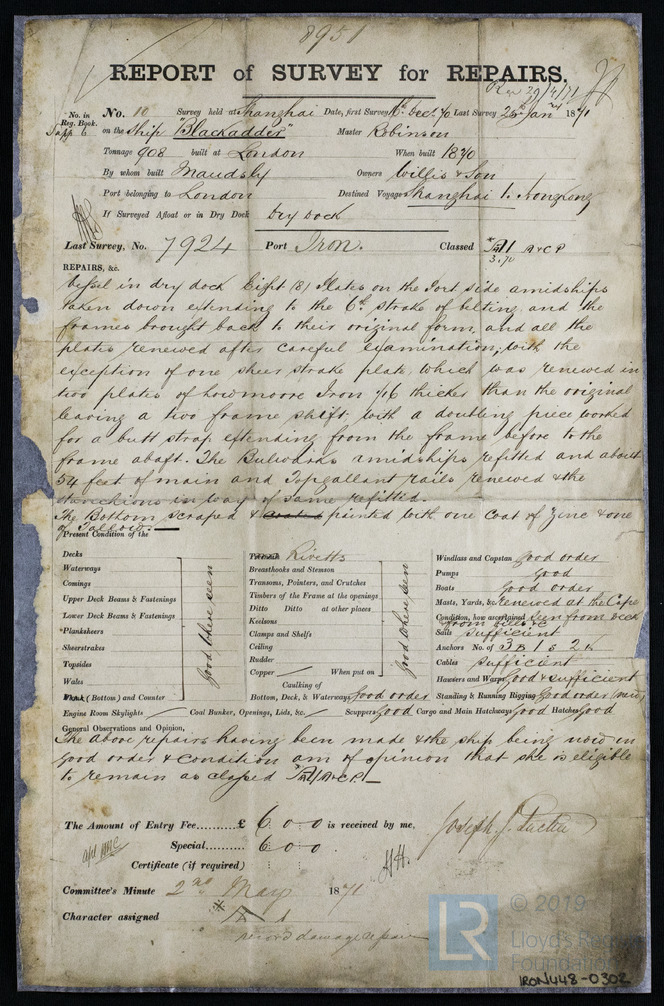 8951
REPORT of SURVEY for REPAIRS.
Rec 29/4/71
No. in Reg. Book. No. 10 Survey held at Shanghai Date, first Survey 6th Dec. 70 Last Survey 25th Jan 1871
Supp 6 on the Ship "Blackadder" Master Robinson
Tonnage 908 built at London When built 1870
By whom built Maudsly Owners Willis & Son
Port belonging to London Destined Voyage Shanghai
If Surveyed Afloat or in Dry Dock Dry Dock
Last Survey, No. 7924 Port Iron. Classed A1 A&CP
3.70
REPAIRS, &c.
Vessel in dry dock Eight (8) Plates on the Port side amidships
taken down extending to the 6th strake of belting, and the
frames brought back to their original form, and all the
plates renewed after careful examination, with the
exception of one sheer strake plate, which was renewed in
two plates of Lowmoore Iron 1/16 thicker than the original
leaving a two frame shift, with a doubling piece worked
for a butt strap extending from the frame before to the
frame abaft. The Bulwarks amidships refitted and about
54 feet of main and Topgallant rails renewed & the
stanchions in way of same refitted.
The Bottom scraped & coated painted with one coat of Zinc & one
of Tallow.
Present Condition of the
Decks
Waterways
Comings
Upper Deck Beams & Fastenings
Lower Deck Beams & Fastenings
Planksheers
Sheerstrakes
Topsides
Wales
Plank (Bottom) and Counter
Good where seen
Treenails Rivetts
Breasthooks and Stemson
Transoms, Pointers, and Crutches
Timbers of the Frame at the openings
Ditto Ditto at other places
Keelsons
Clamps and Shelfs
Ceiling
Rudder
Copper — When put on
Good where seen
Caulking of
Bottom, Deck, & Waterways Good order
Windlass and Capstan Good order
Pumps Good
Boats Good order
Masts, Yards, &c. Renewed at the Cape
Condition, how ascertained Seen from deck
Sails sufficient
Anchors No. of 3 B 1 S 2 K
Cables sufficient
Hawsers and Warps Good & sufficient
Standing & Running Rigging Good order (new)
Engine Room Skylights — Coal Bunker, Openings, Lids, &c. — Scuppers Good Cargo and Main Hatchways Good Hatches Good
General Observations and Opinion,
The above repairs having been made & the ship being now in
good order & condition am of opinion that she is eligible
to remain as classed A1 A&CP.
The Amount of Entry Fee.........£ 6.0.0 is received by me,
Special........ 6.0.0
Certificate (if required)
Committee's Minute 2nd May 1871
Character assigned A 1
record damage repair
LR
© 2019
Lloyd's Register
Foundation
IRON448-0302